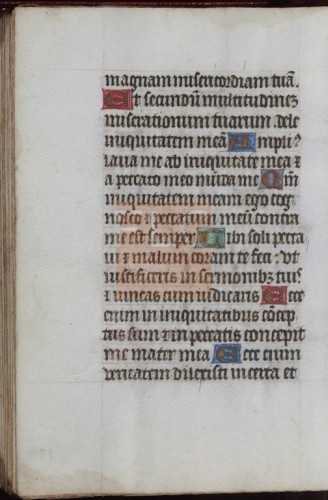 magnam misericordiam tuā.
Et secundū multitudinez
miserationum tuarum dele
iniquitatem meā Ampli⁹
laua me ab iniquitate mea ⁊
a peccato meo mūda me Qm̄
iniquitatem meam ego cog
nosco ⁊ peccatum meū contra
me est semper Tibi soli pecca
ui ⁊ malum coram te feci: vt
iustificeris in sermonibz tuis
⁊ vincas cum iudicaris Ecce
enim in iniquitatibus cōcep
tus sum ⁊ in peccatis concepit
me mater mea Ecce enim
veritatem dilexisti incerta et